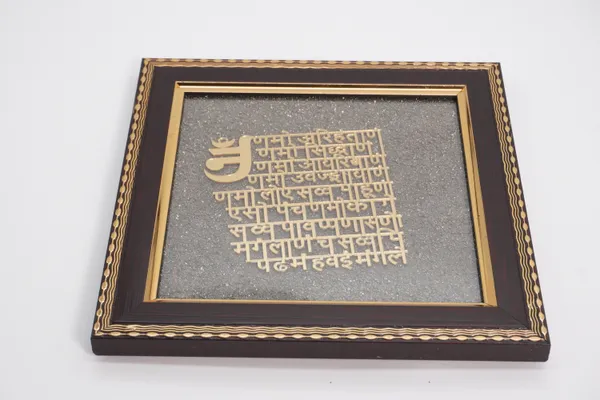 ॐ णमो अरिहंताणं
णमो सिद्धाणं
णमो आयरियाणं
णमो उवज्झायाणं
णमो लोए सव्व साहूणं
एसो पंच णमोक्कारो
सव्व पावप्पणासणो
मंगलाणं च सव्वेसिं
पढमं हवई मंगलं